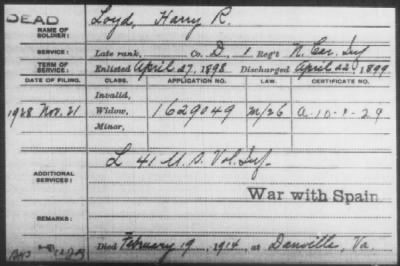 DEAD
NAME OF SOLDIER: Loyd, Harry R.
SERVICE: Late rank, Co. D, 1 Reg't N. Car. Inf
TERM OF SERVICE: Enlisted April 27, 1898 Discharged April 22, 1899
DATE OF FILING. CLASS. APPLICATION NO. LAW. CERTIFICATE NO.
Invalid,
1928 Nov. 21 Widow, 1629049 m/26 A-10-9-29
Minor,
ADDITIONAL SERVICES: L 41 U.S. Vol. Inf.
War with Spain
REMARKS:
Died February 19, 1914, at Danville, Va